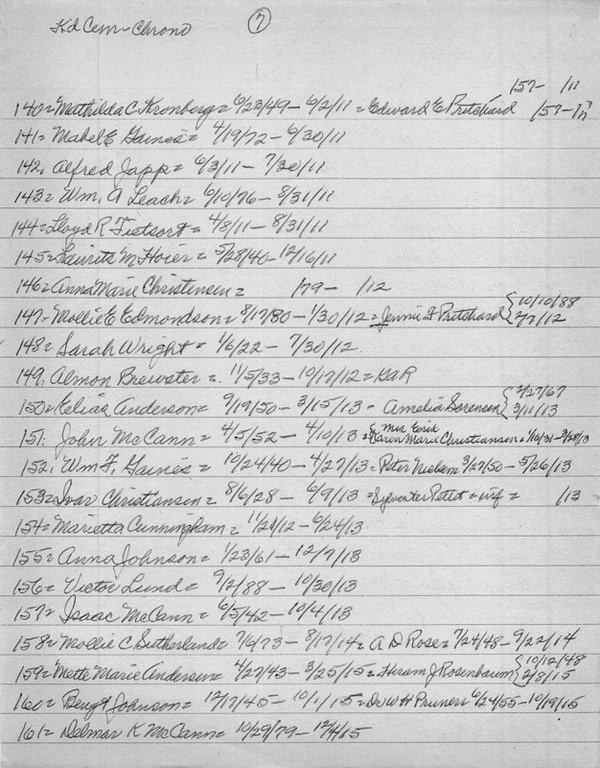 Kd Cem - Chrono 7
157- /11
140 = Mathilda C. Kronberg = 6/23/49 - 6/2/11 = Edward E Pritchard 157-11
141 = Mabel E Gaines = 4/19/72 - 6/30/11
142. Alfred Japp = 6/3/11 - 7/30/11
143 = Wm. A Leach = 6/10/76 - 8/31/11
144 = Lloyd R = 4/8/11 - 8/31/11
145 = Laurits M Hoier = 5/28/40 - 12/16/11
146 = Anna Marie Christensen = /79 - /12
147 = Mollie E Edmondson = 8/17/80 - 1/30/12 = Jennie F Pritchard { 10/10/88
7/7/12
148 = Sarah Wright = 1/6/22 - 7/30/12.
149. Almon Brewster = 11/5/33 - 10/17/12 = GAR
150 = Elias Anderson = 9/19/50 - 3/15/13 - Amelia Sorensen { 2/27/67
3/11/13
151. John McCann = 4/5/52 - 4/10/13 = & Mrs Erick
Karen Marie Christianson =
152. Wm F. Gaines = 10/24/40 - 4/27/13 = Peter Nielsen 3/27/50 - 5/26/13
153 = Ivar Christiansen = 8/6/28 - 6/9/13 = Sylvester Pettet = inf = /13
154 = Marietta Cunningham = 11/21/12 - 6/24/13
155 = Anna Johnson = 1/23/61 - 12/7/13
156 = Victor Lund = 9/2/88 - 10/30/13
157 = Isaac McCann = 6/5/42 - 10/4/13
158 = Mollie C Sutherland = 7/6/73 - 8/17/14 = A D Rose = 7/24/48 - 9/22/14
159 = Mette Marie Andersen = 4/27/43 - 3/25/15 = Hiram J Rosenbaum { 10/12/48
2/8/15
160 = Bengt Johnson = 12/17/45 - 10/1/15 = Dr W H Pruner = 6/24/55 - 10/19/15
161 = Delmar K McCann = 10/29/79 - 12/4/15